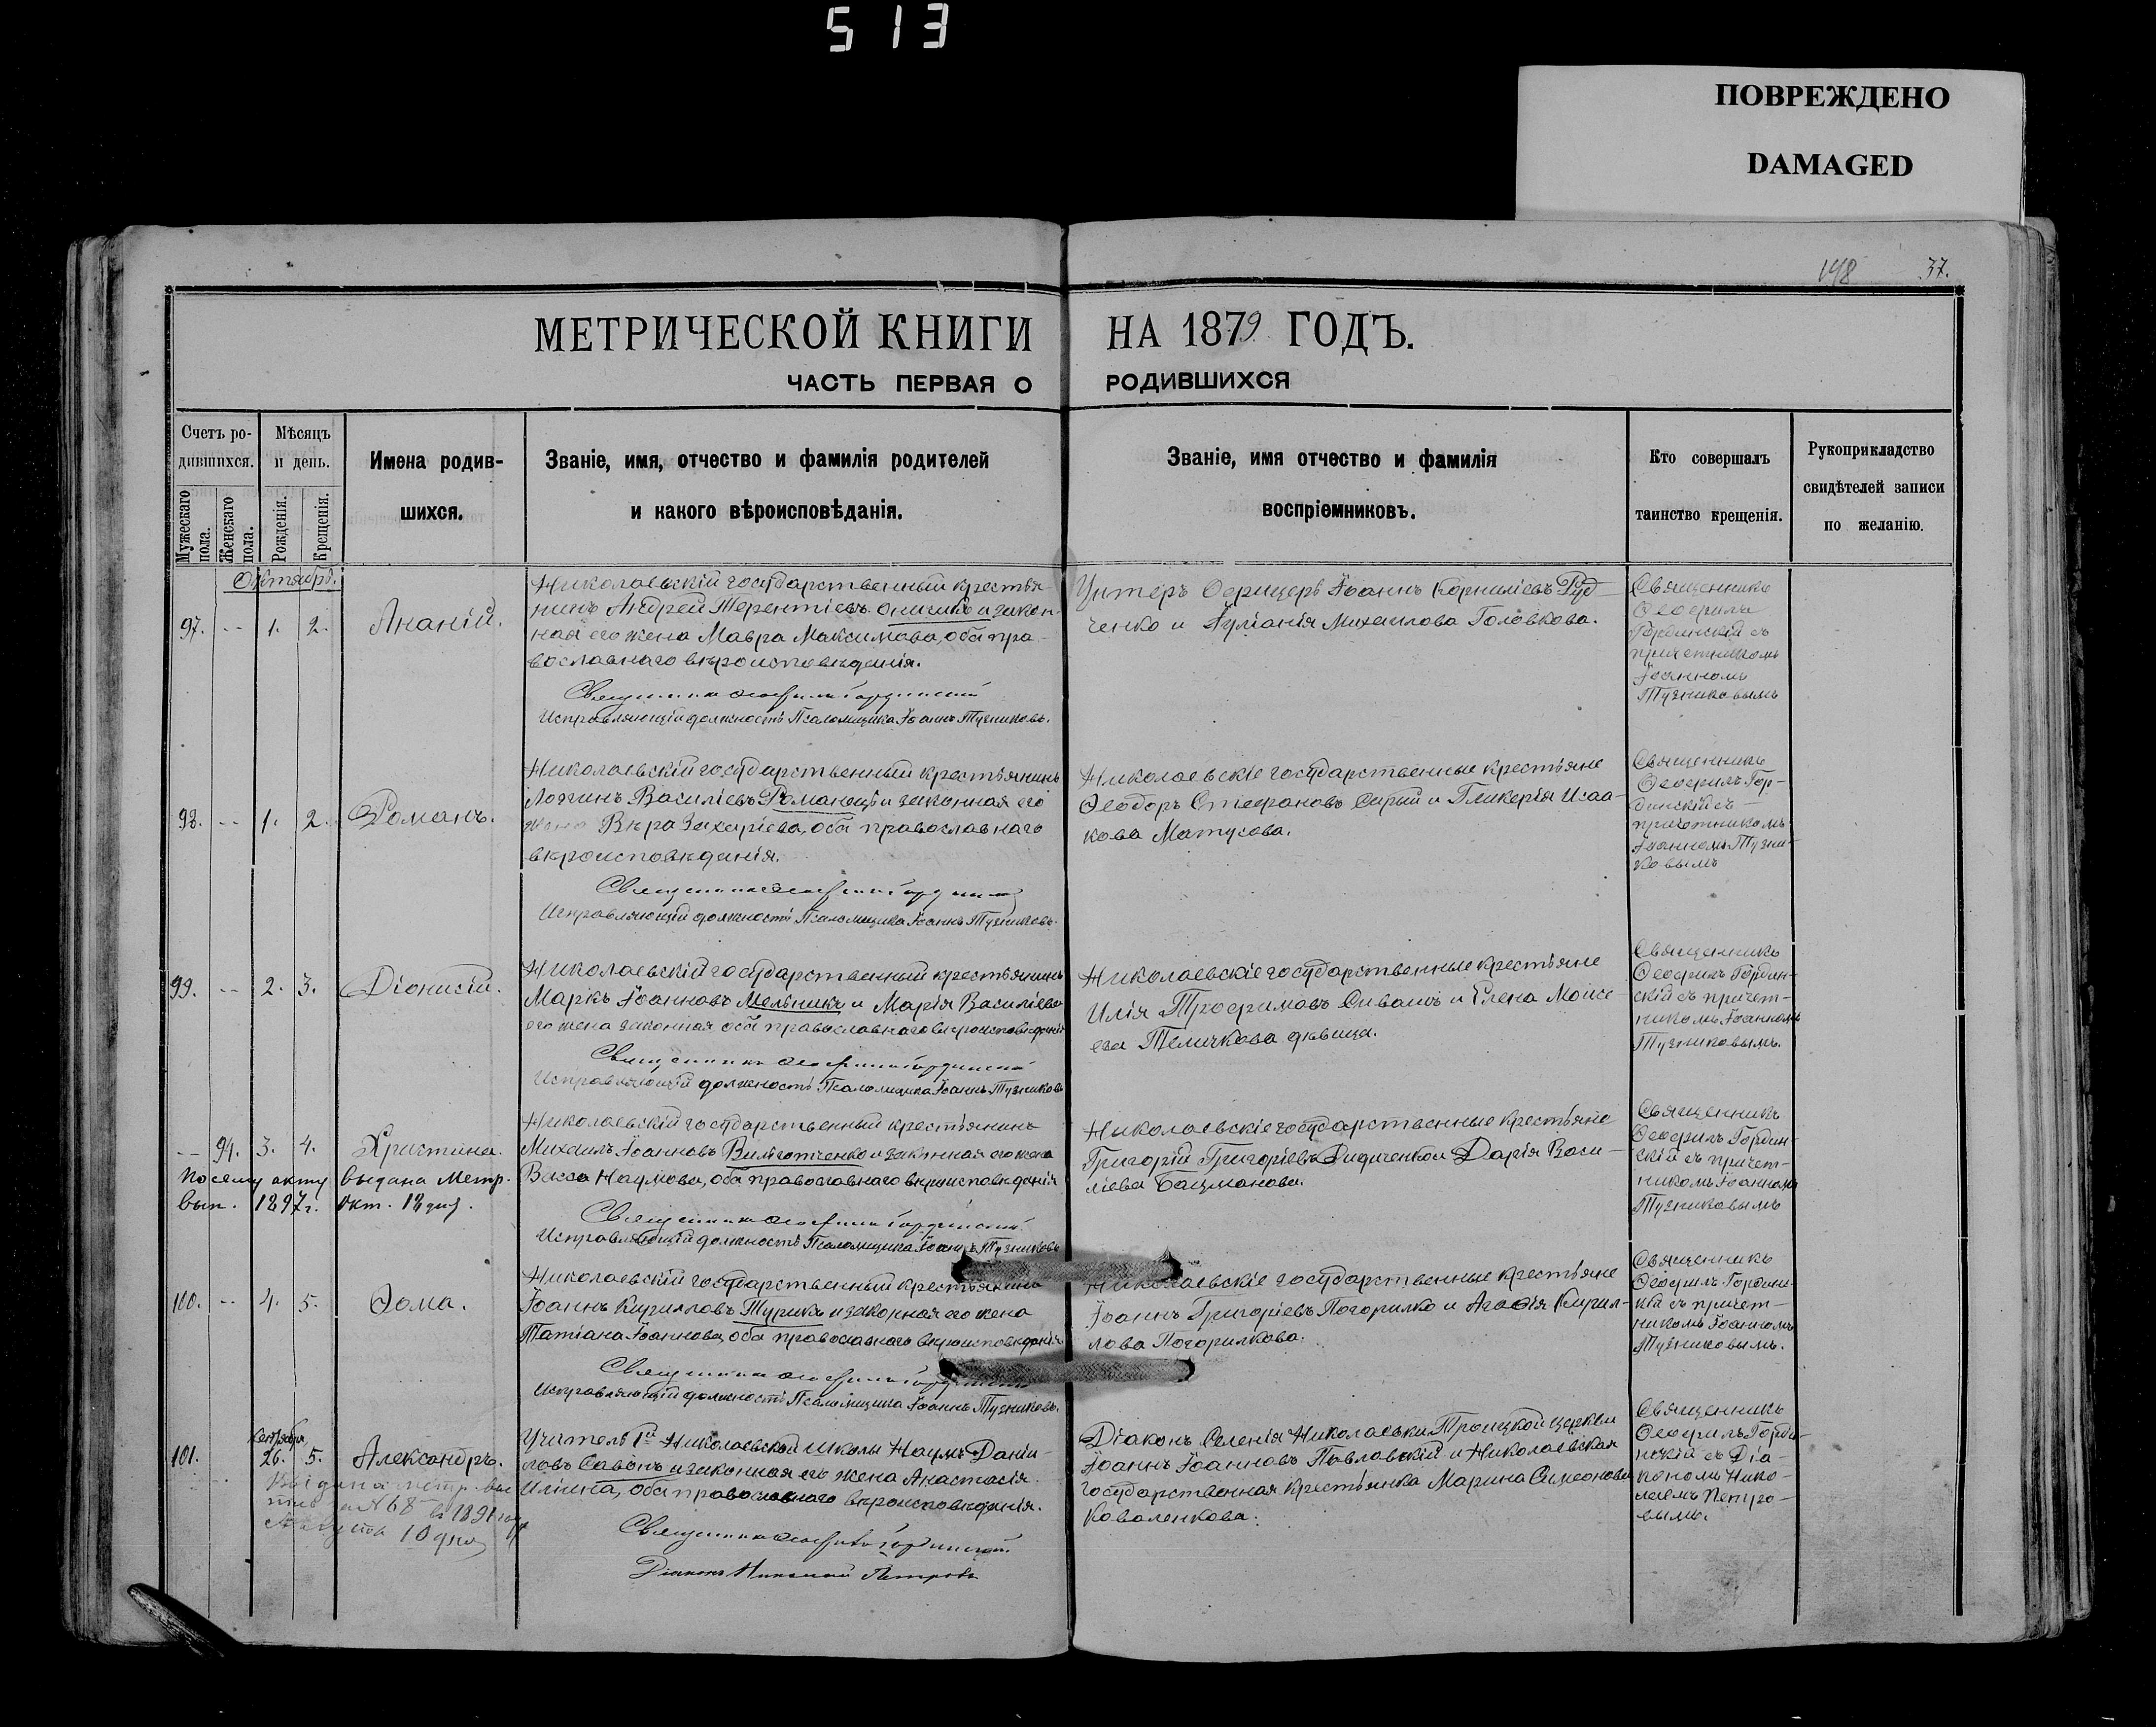 513
ПОВРЕЖДЕНО
DAMAGED
148 37.
МЕТРИЧЕСКОЙ КНИГИ НА 1879 ГОДЪ.
ЧАСТЬ ПЕРВАЯ О РОДИВШИХСЯ
Счетъ ро-
дившихся.
Мужескаго
пола.
Женскаго
пола.
Мѣсяцъ
и день.
Рожденія.
Крещенія.
Имена родив-
шихся.
Званіе, имя, отчество и фамилія родителей
и какого вѣроисповѣданія.
Званіе, имя отчество и фамилія
воспріемниковъ.
Кто совершалъ
таинство крещенія.
Рукоприкладство
свидѣтелей записи
по желанію.
Октябрь.
97. -- 1. 2. Ананій.
Николаевскій государственный крестья-
нинъ Андрей Терентіевъ и закон-
ная его жена Мавра Максимова, оба пра-
вославнаго вѣроисповѣданія.
Священникъ Ѳеофилъ Гординскій
Исправляющій должность Псаломщика Іоаннъ Тузниковъ.
Унтеръ Офицеръ Іоаннъ Корниліевъ Руд-
ченко и Іуліанія Михаилова Головкова.
Священникъ
Ѳеофилъ
Гординскій съ
причетникомъ
Іоанномъ
Тузниковымъ
98. -- 1. 2. Романъ.
Николаевскій государственный крестьянинъ
Логинъ Василіевъ Романецъ и законная его
жена Вѣра Захаріева, оба православнаго
вѣроисповѣданія.
Священникъ Ѳеофилъ Гординскій
Исправляющій должность Псаломщика Іоаннъ Тузниковъ.
Николаевскіе государственные крестьяне
Ѳеодоръ Стефановъ Сирый и Гликерія Исаа-
кова Матусова.
Священникъ
Ѳеофилъ Гор-
динскій съ
причетникомъ
Іоанномъ Тузни-
ковымъ
99. -- 2. 3. Діонисій.
Николаевскій государственный крестьянинъ
Маркъ Іоанновъ Мельникъ и Марія Василіева
его жена законная оба православнаго вѣроисповѣданія
Священникъ Ѳеофилъ Гординскій
Исправляющій должность Псаломщика Іоаннъ Тузниковъ
Николаевскіе государственные крестьяне
Илія Трофимовъ Сивашъ и Елена Моисе-
ева Теличкова дѣвица.
Священникъ
Ѳеофилъ Гордин-
скій съ причет-
никомъ Іоанномъ
Тузниковымъ.
-- 94. 3. 4. Христина.
По сему акту выдана Метр.
вып. 1897 г. окт. 18 дня.
Николаевскій государственный крестьянинъ
Михаилъ Іоанновъ и законная его жена
Васса Наумова, оба православнаго вѣроисповѣданія
Священникъ Ѳеофилъ Гординскій
Исправляющій должность Псаломщика Іоаннъ Тузниковъ
Николаевскіе государственные крестьяне
Григорій Григоріевъ Дидиченко и Дарія Васи-
ліева Бацманова.
Священникъ
Ѳеофилъ Гордин-
скій съ причет-
никомъ Іоанномъ
Тузниковымъ
100. -- 4. 5. Ѳома.
Николаевскій государственный крестьянинъ
Іоаннъ Кирилловъ Турикъ и законная его жена
Татіана Іоаннова, оба православнаго вѣроисповѣданія
Священникъ Ѳеофилъ Гординскій
Исправляющій должность Псаломщика Іоаннъ Тузниковъ.
Николаевскіе государственные крестьяне
Іоаннъ Григоріевъ Погорилко и Агафія Кирил-
лова Погорилкова.
Священникъ
Ѳеофилъ Гординс-
кій съ причет-
никомъ Іоанномъ
Тузниковымъ.
Сентября
101. 26. 5. Александръ.
Выдана метр. вы
пись за № 68 въ 1891 году
Августа 10 дня
Учитель 1й Николаевской школы Наумъ Даніи-
ловъ Савонъ и законная его жена Анастасія
Иліина, оба православнаго вѣроисповѣданія.
Священникъ Ѳеофилъ Гординскій
Діаконъ Николай Петровъ
Діаконъ Селенія Николаевки Троицкой церкви
Іоаннъ Іоанновъ Павловскій и Николаевская
государственная крестьянка Марина Симеонова
Коваленкова.
Священникъ
Ѳеофилъ Горди-
нскій съ Діа-
кономъ Нико-
лаемъ Петро-
вымъ.